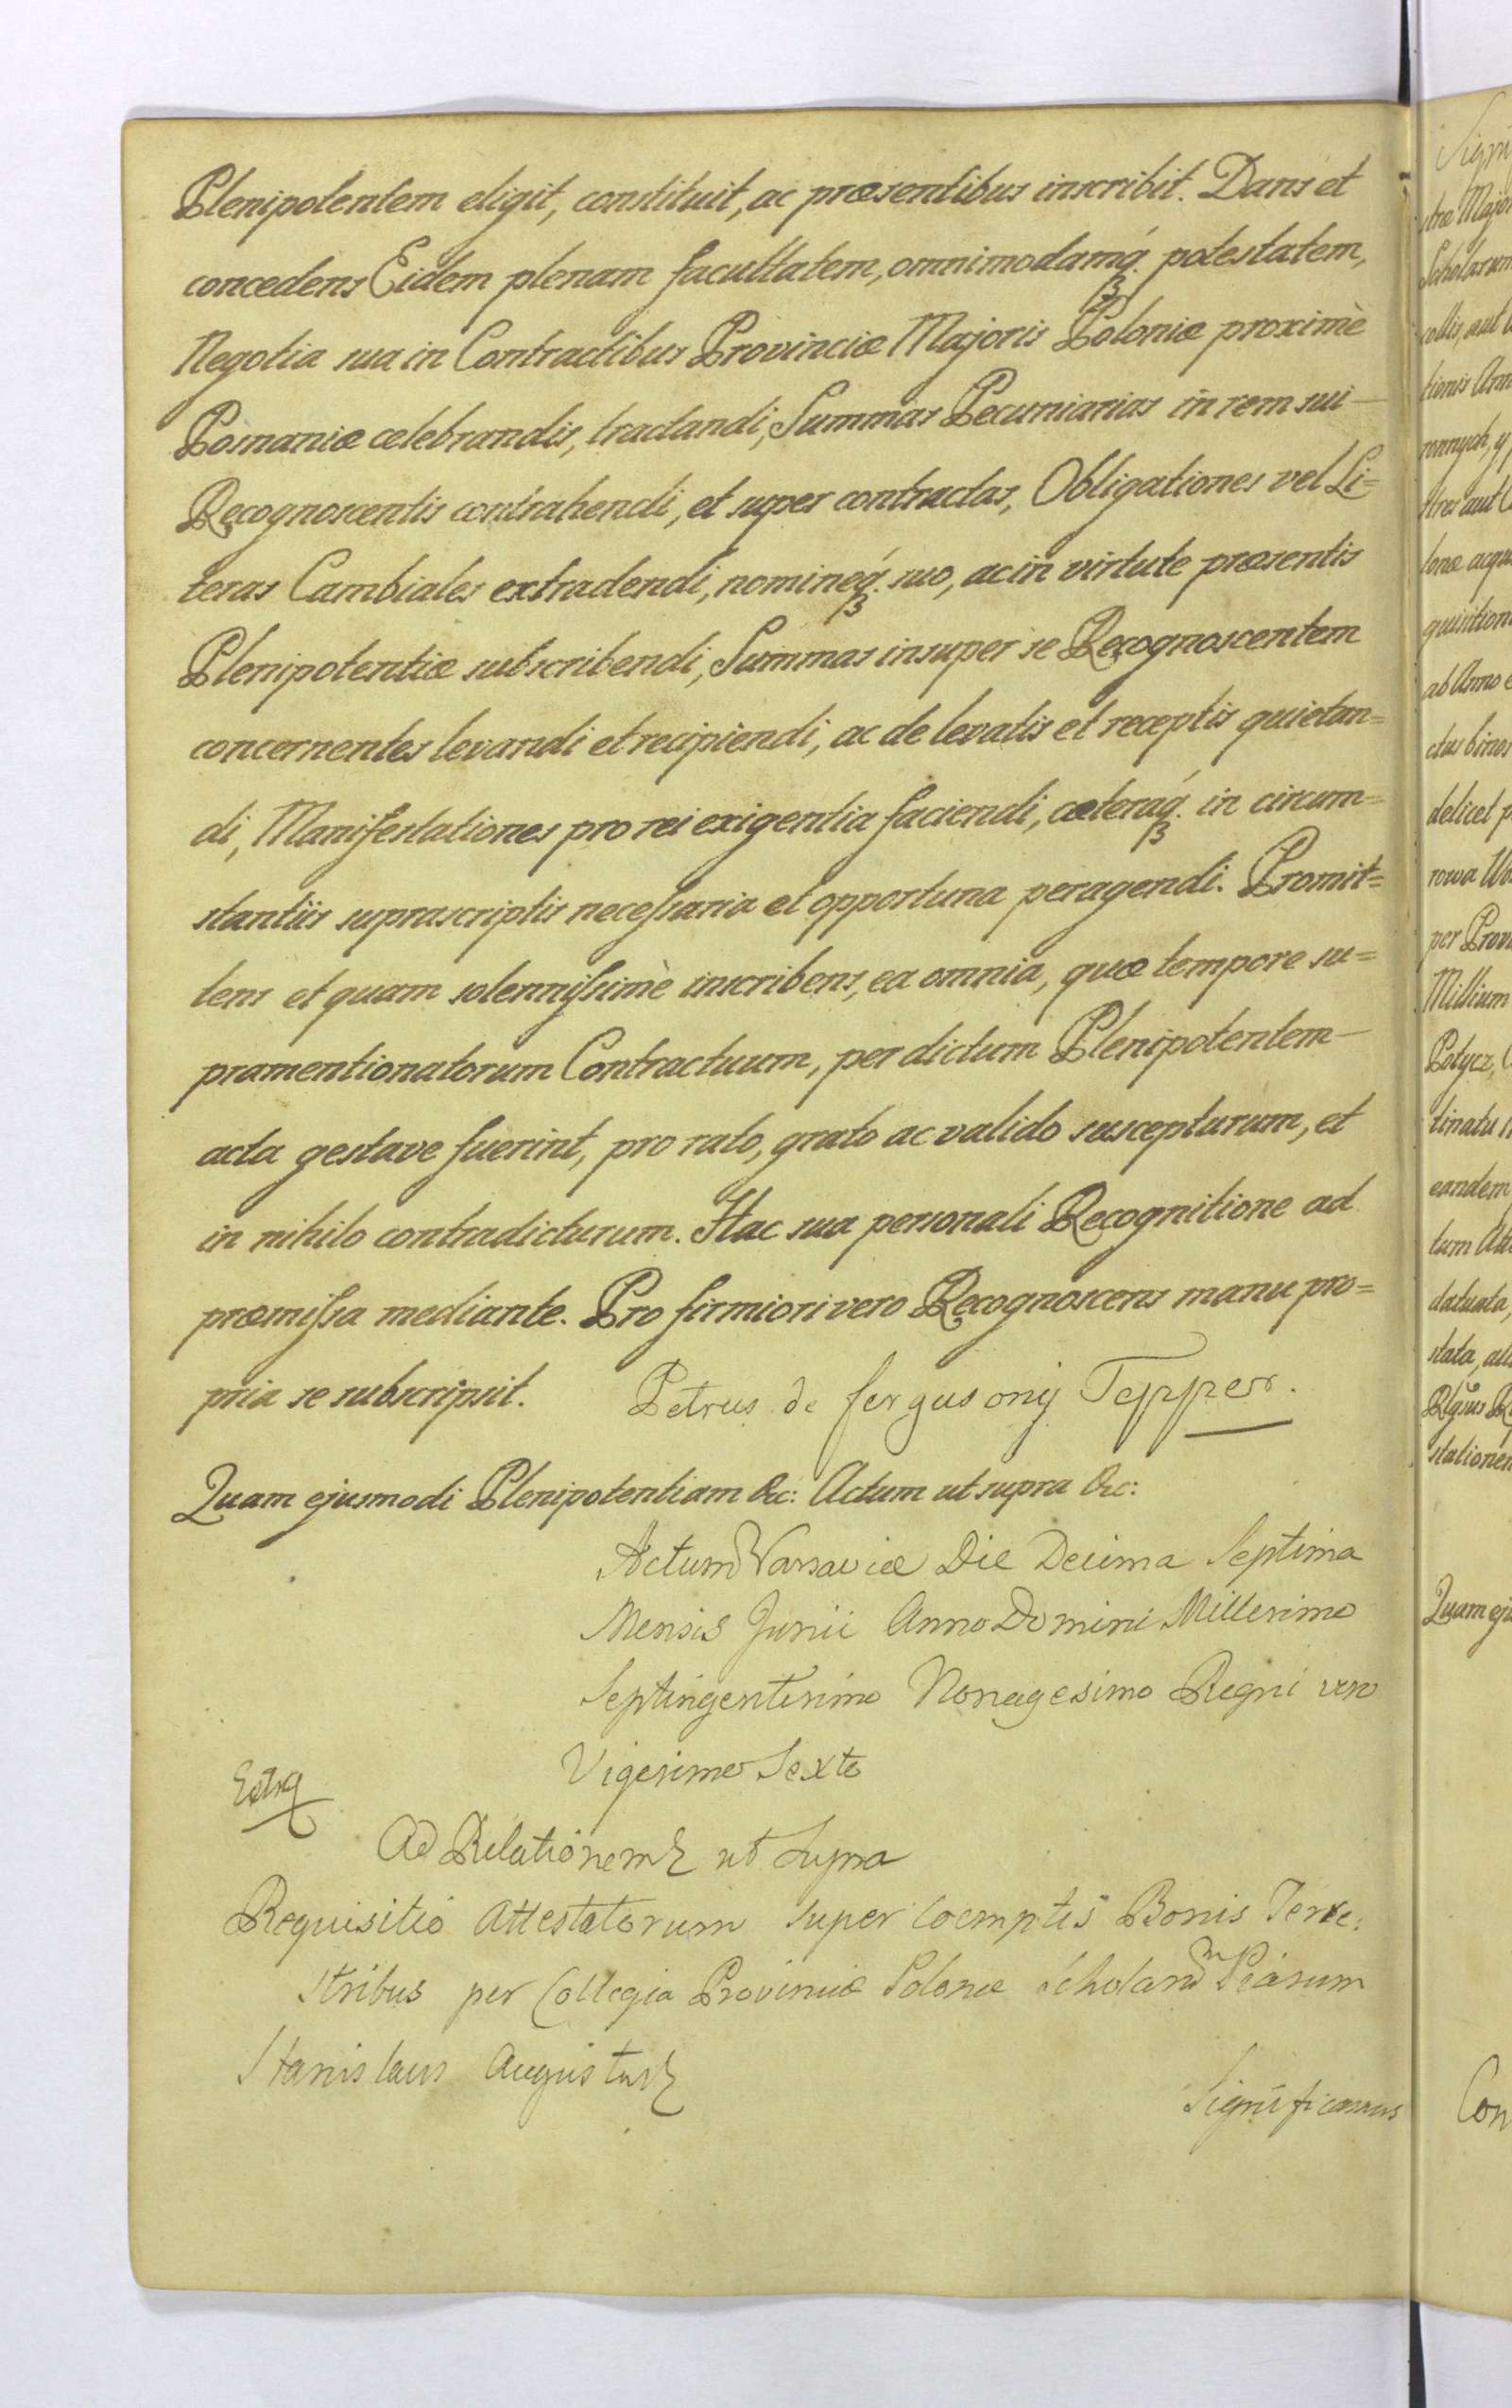 Plenipotentem eligit, constituit, ac præsentibus inscribit. Dans et
concedens Eidem plenam facultatem, omnimodamq́ꝫ. potestatem,
Negotia sua in Contractibus Provinciæ Majoris Poloniæ proximè
Posnaniæ celebrandis, tractandi, Summas Pecuniarias in rem sui
Recognoscentis contrahendi, et super contractas, Obligationes vel Li=
teras Cambiales extradendi, nomineq́ꝫ. suo, ac in virtute præsentis
Plenipotentiæ subscribendi, Summas insuper se Recognoscentem
concernentes levandi et recipiendi, ac de levatis et receptis quietan=
di, Manifestationes pro rei exigentia faciendi, cæteraq́ꝫ. in circum=
stantiis suprascriptis necessaria et opportuna peragendi. Promit=
tens et quam solennissimè inscribens, ea omnia, quæ tempore su=
pramentionatorum Contractuum, per dictum Plenipotentem
acta gestave fuerint, pro rato, grato ac valido suscepturum, et
in nihilo contradicturum. Hac sua personali Recognitione ad
præmissa mediante. Pro firmiori vero Recognoscens manu pro=
pria se subscripsit. Petrus de fergusony Tepper.
Quam ejusmodi Plenipotentiam &c: Actum ut supra &c:
Actum Varsaviæ Die Decima Septima
Mensis Junii Anno Domini Millesimo
Septingentesimo Nonagesimo Regni vero
Vigesimo Sexto
Ad Relationem ut Supra
Requisitio Attestatorum super Coemptis Bonis Terre:
stribus per Collegia Provinciæ Polonæ Scholarum Piarum
Stanislaus Augustus
Significamus